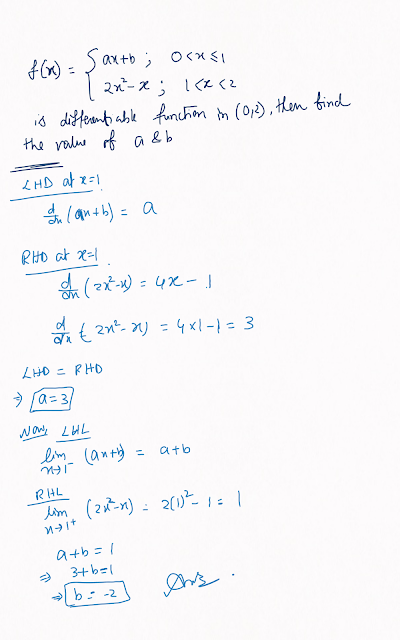 f(x) = { ax+b ; 0<x≤1
2x²-x ; 1<x<2
is differentiable function in (0,2), then find
the value of a & b
LHD at x=1
d/dx (ax+b) = a
RHD at x=1.
d/dx (2x²-x) = 4x - 1
d/dx (2x²-x) = 4x1-1 = 3
LHD = RHD
⇒ a=3
Now, LHL
lim x→1⁻ (ax+b) = a+b
RHL
lim x→1⁺ (2x²-x) = 2(1)²- 1 = 1
a+b = 1
⇒ 3+b=1
⇒ b = -2 Ans.